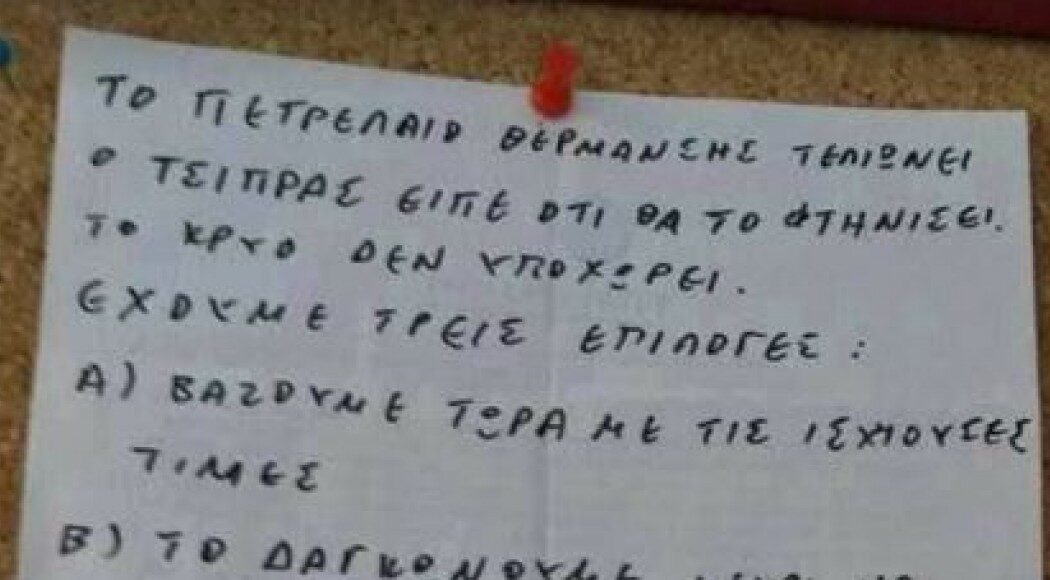 ΤΟ ΠΕΤΡΕΛΑΙΟ ΘΕΡΜΑΝΣΗΣ ΤΕΛΙΩΝΕΙ
Ο ΤΣΙΠΡΑΣ ΕΙΠΕ ΟΤΙ ΘΑ ΤΟ ΦΤΗΝΙΣΕΙ.
ΤΟ ΚΡΥΟ ΔΕΝ ΥΠΟΧΩΡΕΙ.
ΕΧΟΥΜΕ ΤΡΕΙΣ ΕΠΙΛΟΓΕΣ :
Α) ΒΑΖΟΥΜΕ ΤΩΡΑ ΜΕ ΤΙΣ ΙΣΧΙΟΥΣΕΣ
ΤΙΜΕΣ
Β) ΤΟ ΔΑΓΚΟΝΟΥΜΕ